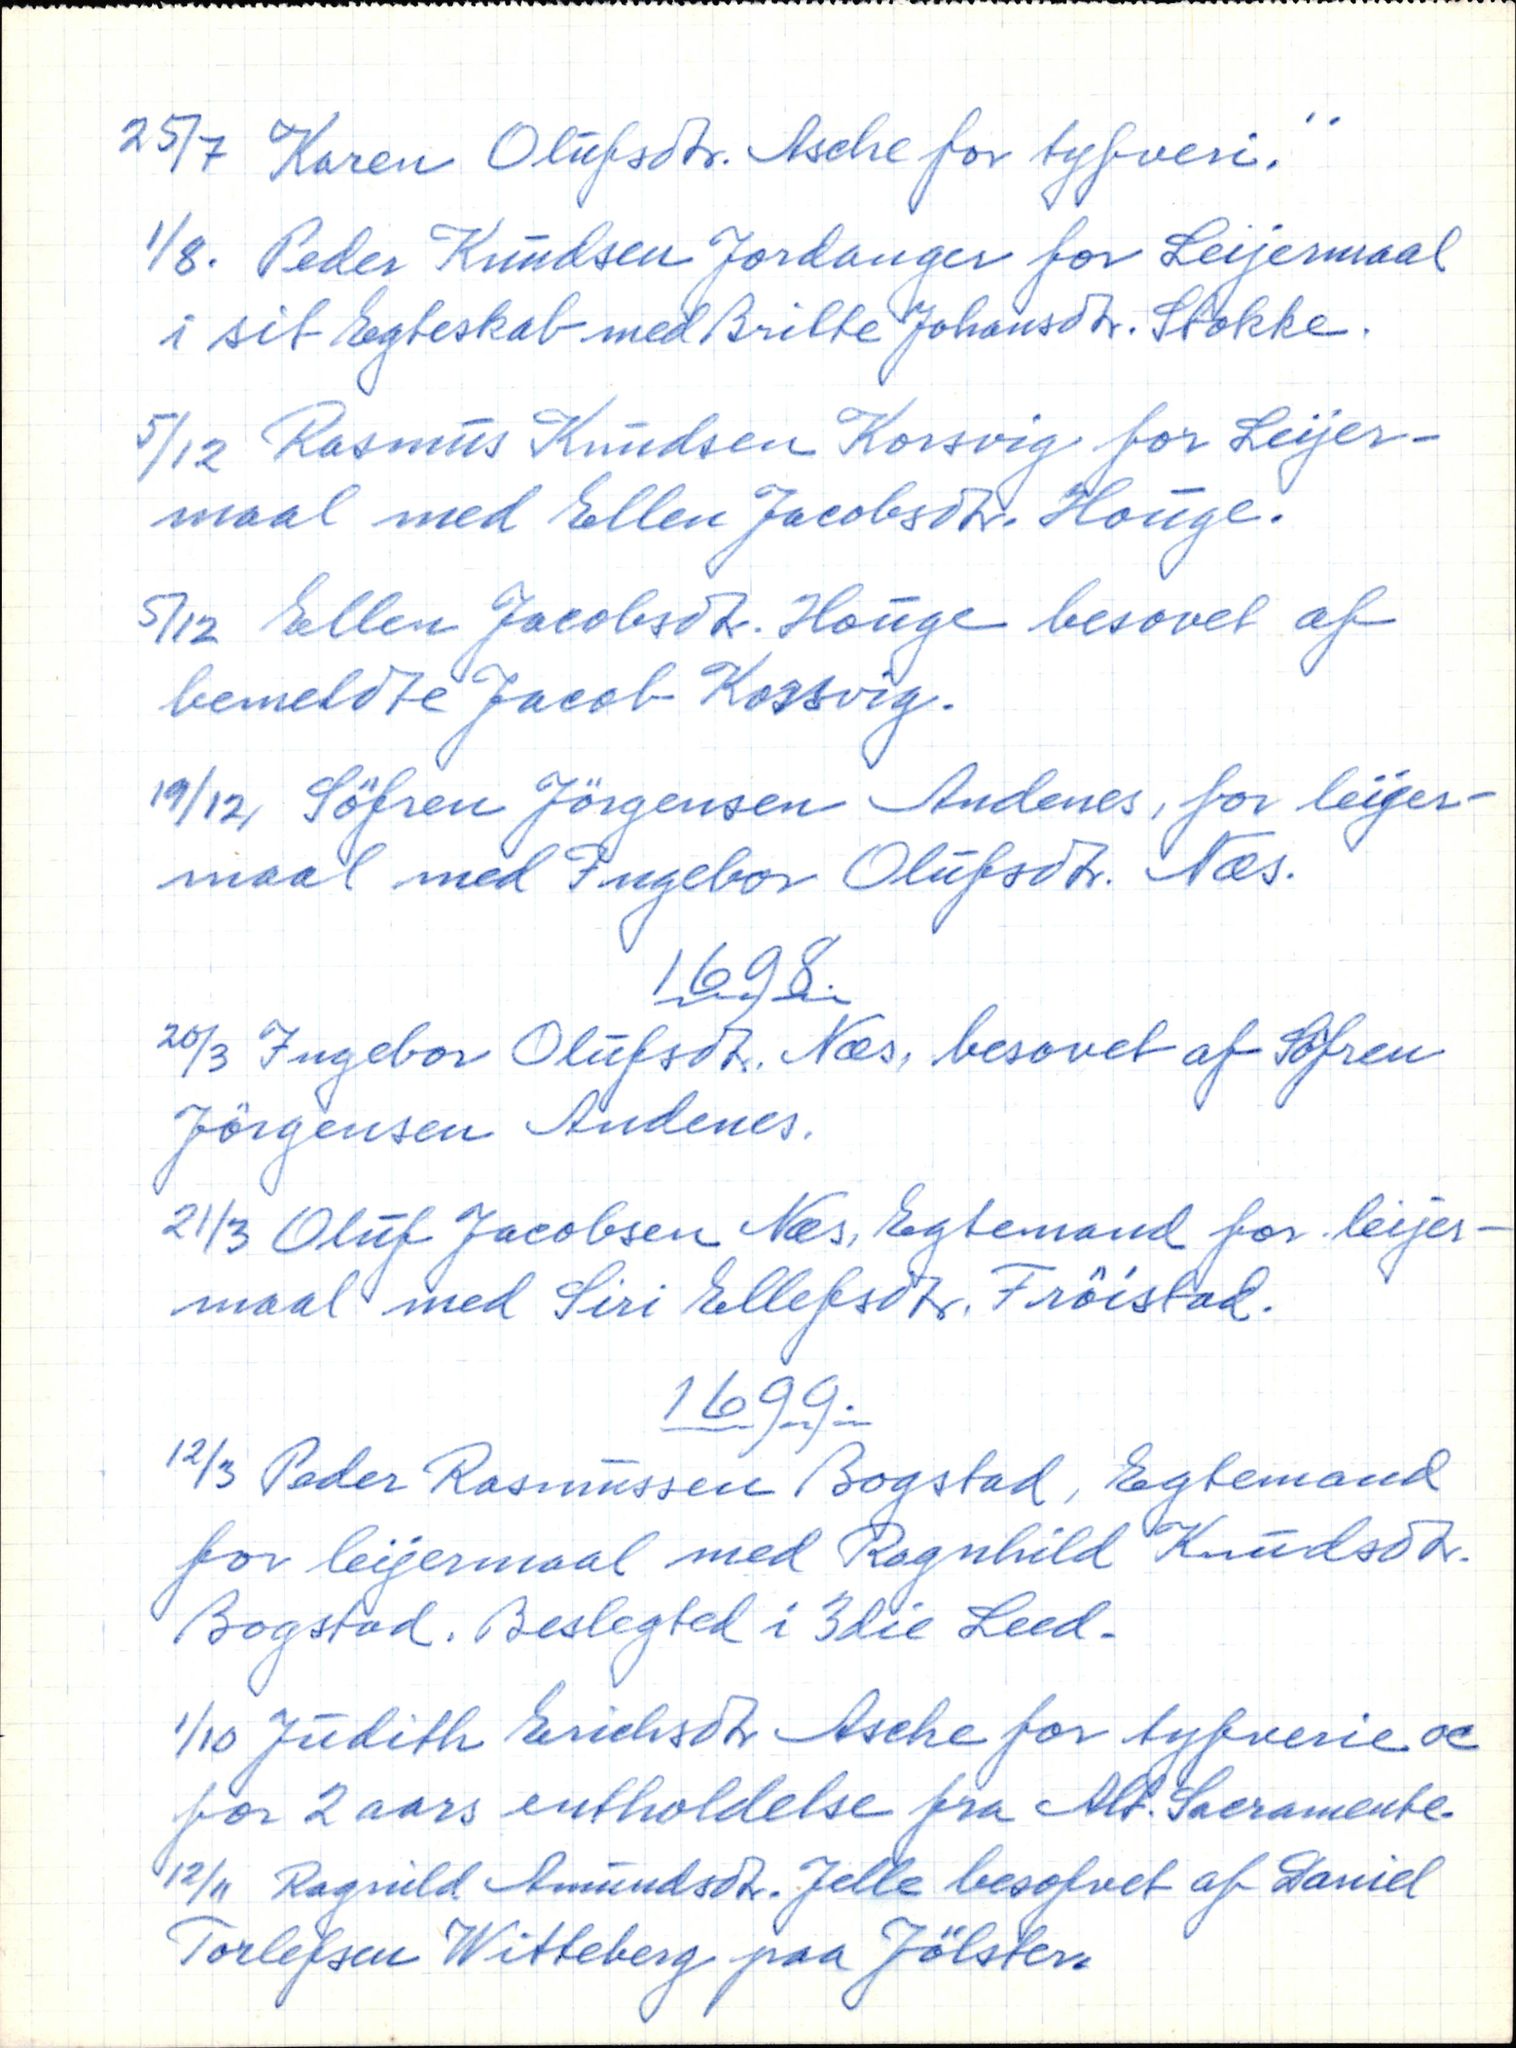 25/7 Karen Olufsdtr. Asche for tyfveri."
1/8. Peder Knudsen Jordanger for Leijermaal
i sit Egteskab med Britte Johansdtr. Stokke.
5/12 Rasmus Knudsen Korsvig for Leijer-
maal med Ellen Jacobsdtr. Houge.
5/12 Ellen Jacobsdtr. Houge besovet af
bemeldte Jacob Korsvig.
19/12, Söfren Jörgensen Andenes, for leijer-
maal med Ingebor Olufsdtr. Næs.
1698.
20/3 Ingebor Olufsdtr. Næs, besovet af Söfren
Jörgensen Andenes.
21/3 Oluf Jacobsen Næs, Egtemand for leijer-
maal med Siri Ellefsdtr. Fröistad.
1699.
12/3 Peder Rasmussen Bogstad, Egtemand
for leijermaal med Ragnhild Knudsdtr.
Bogstad. Beslegted i 3die Leed.
1/10 Judith Erichsdtr Asche for tyfverie oc
for 2 aars entholdelse fra Alt. Sacramente.
12/11 Ragnild Amundsdtr. Jelle besofvet af Daniel
Torlefsen Witteberg paa Jölster.